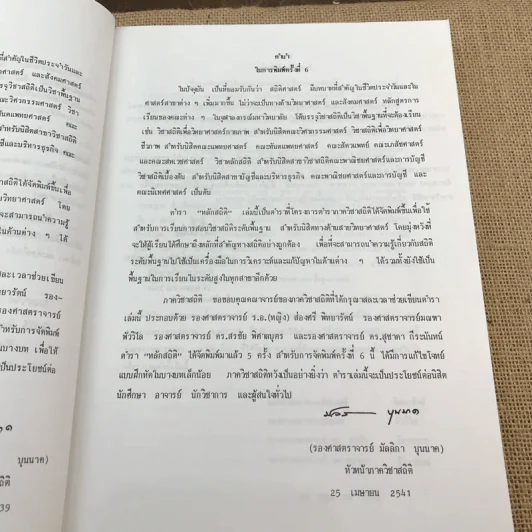 คำนำ
ในการพิมพ์ครั้งที่ 6
ในปัจจุบัน เป็นที่ยอมรับกันว่า สถิติศาสตร์ มีบทบาทที่สำคัญในชีวิตประจำวันและใน
ศาสตร์สาขาต่าง ๆ เพิ่มมากขึ้น ไม่ว่าจะเป็นทางด้านวิทยาศาสตร์ และสังคมศาสตร์ หลักสูตรการ
เรียนของคณะต่าง ๆ ในจุฬาลงกรณ์มหาวิทยาลัย ได้บรรจุวิชาสถิติเป็นวิชาพื้นฐานที่จะต้องเรียน
เช่น วิชาสถิติเพื่อวิทยาศาสตร์กายภาพ สำหรับนิสิตคณะวิศวกรรมศาสตร์ วิชาสถิติเพื่อวิทยาศาสตร์
ชีวภาพ สำหรับนิสิตคณะแพทยศาสตร์ คณะทันตแพทยศาสตร์ คณะสัตวแพทยศาสตร์ คณะเภสัชศาสตร์
และคณะสหเวชศาสตร์ วิชาหลักสถิติ สำหรับนิสิตสาขาวิชาสถิติคณะพาณิชยศาสตร์และการบัญชี
วิชาสถิติเบื้องต้น สำหรับนิสิตสาขาบัญชีและบริหารธุรกิจ คณะพาณิชยศาสตร์และการบัญชี และ
คณะนิเทศศาสตร์ เป็นต้น
ตำรา "หลักสถิติ" เล่มนี้เป็นตำราที่โครงการตำราภาควิชาสถิติได้จัดพิมพ์ขึ้นเพื่อใช้
สำหรับการเรียนการสอนวิชาสถิติระดับพื้นฐาน สำหรับนิสิตทางด้านสายวิทยาศาสตร์ โดยมุ่งหวังที่
จะให้ผู้เรียนได้ศึกษาถึงหลักที่สำคัญทางสถิติอย่างถูกต้อง เพื่อที่จะสามารถนำความรู้เกี่ยวกับสถิติ
ระดับพื้นฐานไปใช้เป็นเครื่องมือในการวิเคราะห์และแก้ปัญหาในด้านต่าง ๆ ได้รวมทั้งยังใช้เป็น
พื้นฐานในการเรียนในระดับสูงในทุกสาขาอีกด้วย
ภาควิชาสถิติ ขอขอบคุณคณาจารย์ของภาควิชาสถิติที่ได้กรุณาสละเวลาช่วยเขียนตำรา
เล่มนี้ ประกอบด้วย รองศาสตราจารย์ ร.อ.(หญิง) ส่องศรี พิทยารัตน์ รองศาสตราจารย์มณฑา
พัววิไล รองศาสตราจารย์ ดร.สรชัย พิศาลบุตร และรองศาสตราจารย์ ดร.สุชาดา กีระนันทน์
ตำรา "หลักสถิติ" ได้จัดพิมพ์มาแล้ว 5 ครั้ง สำหรับการจัดพิมพ์ครั้งที่ 6 นี้ ได้มีการแก้ไขโจทย์
แบบฝึกหัดในบางบทเล็กน้อย ภาควิชาสถิติหวังเป็นอย่างยิ่งว่า ตำราเล่มนี้จะเป็นประโยชน์ต่อนิสิต
นักศึกษา อาจารย์ นักวิชาการ และผู้สนใจทั่วไป
บุนนาค
(รองศาสตราจารย์ มัลลิกา บุนนาค)
หัวหน้าภาควิชาสถิติ
25 เมษายน 2541